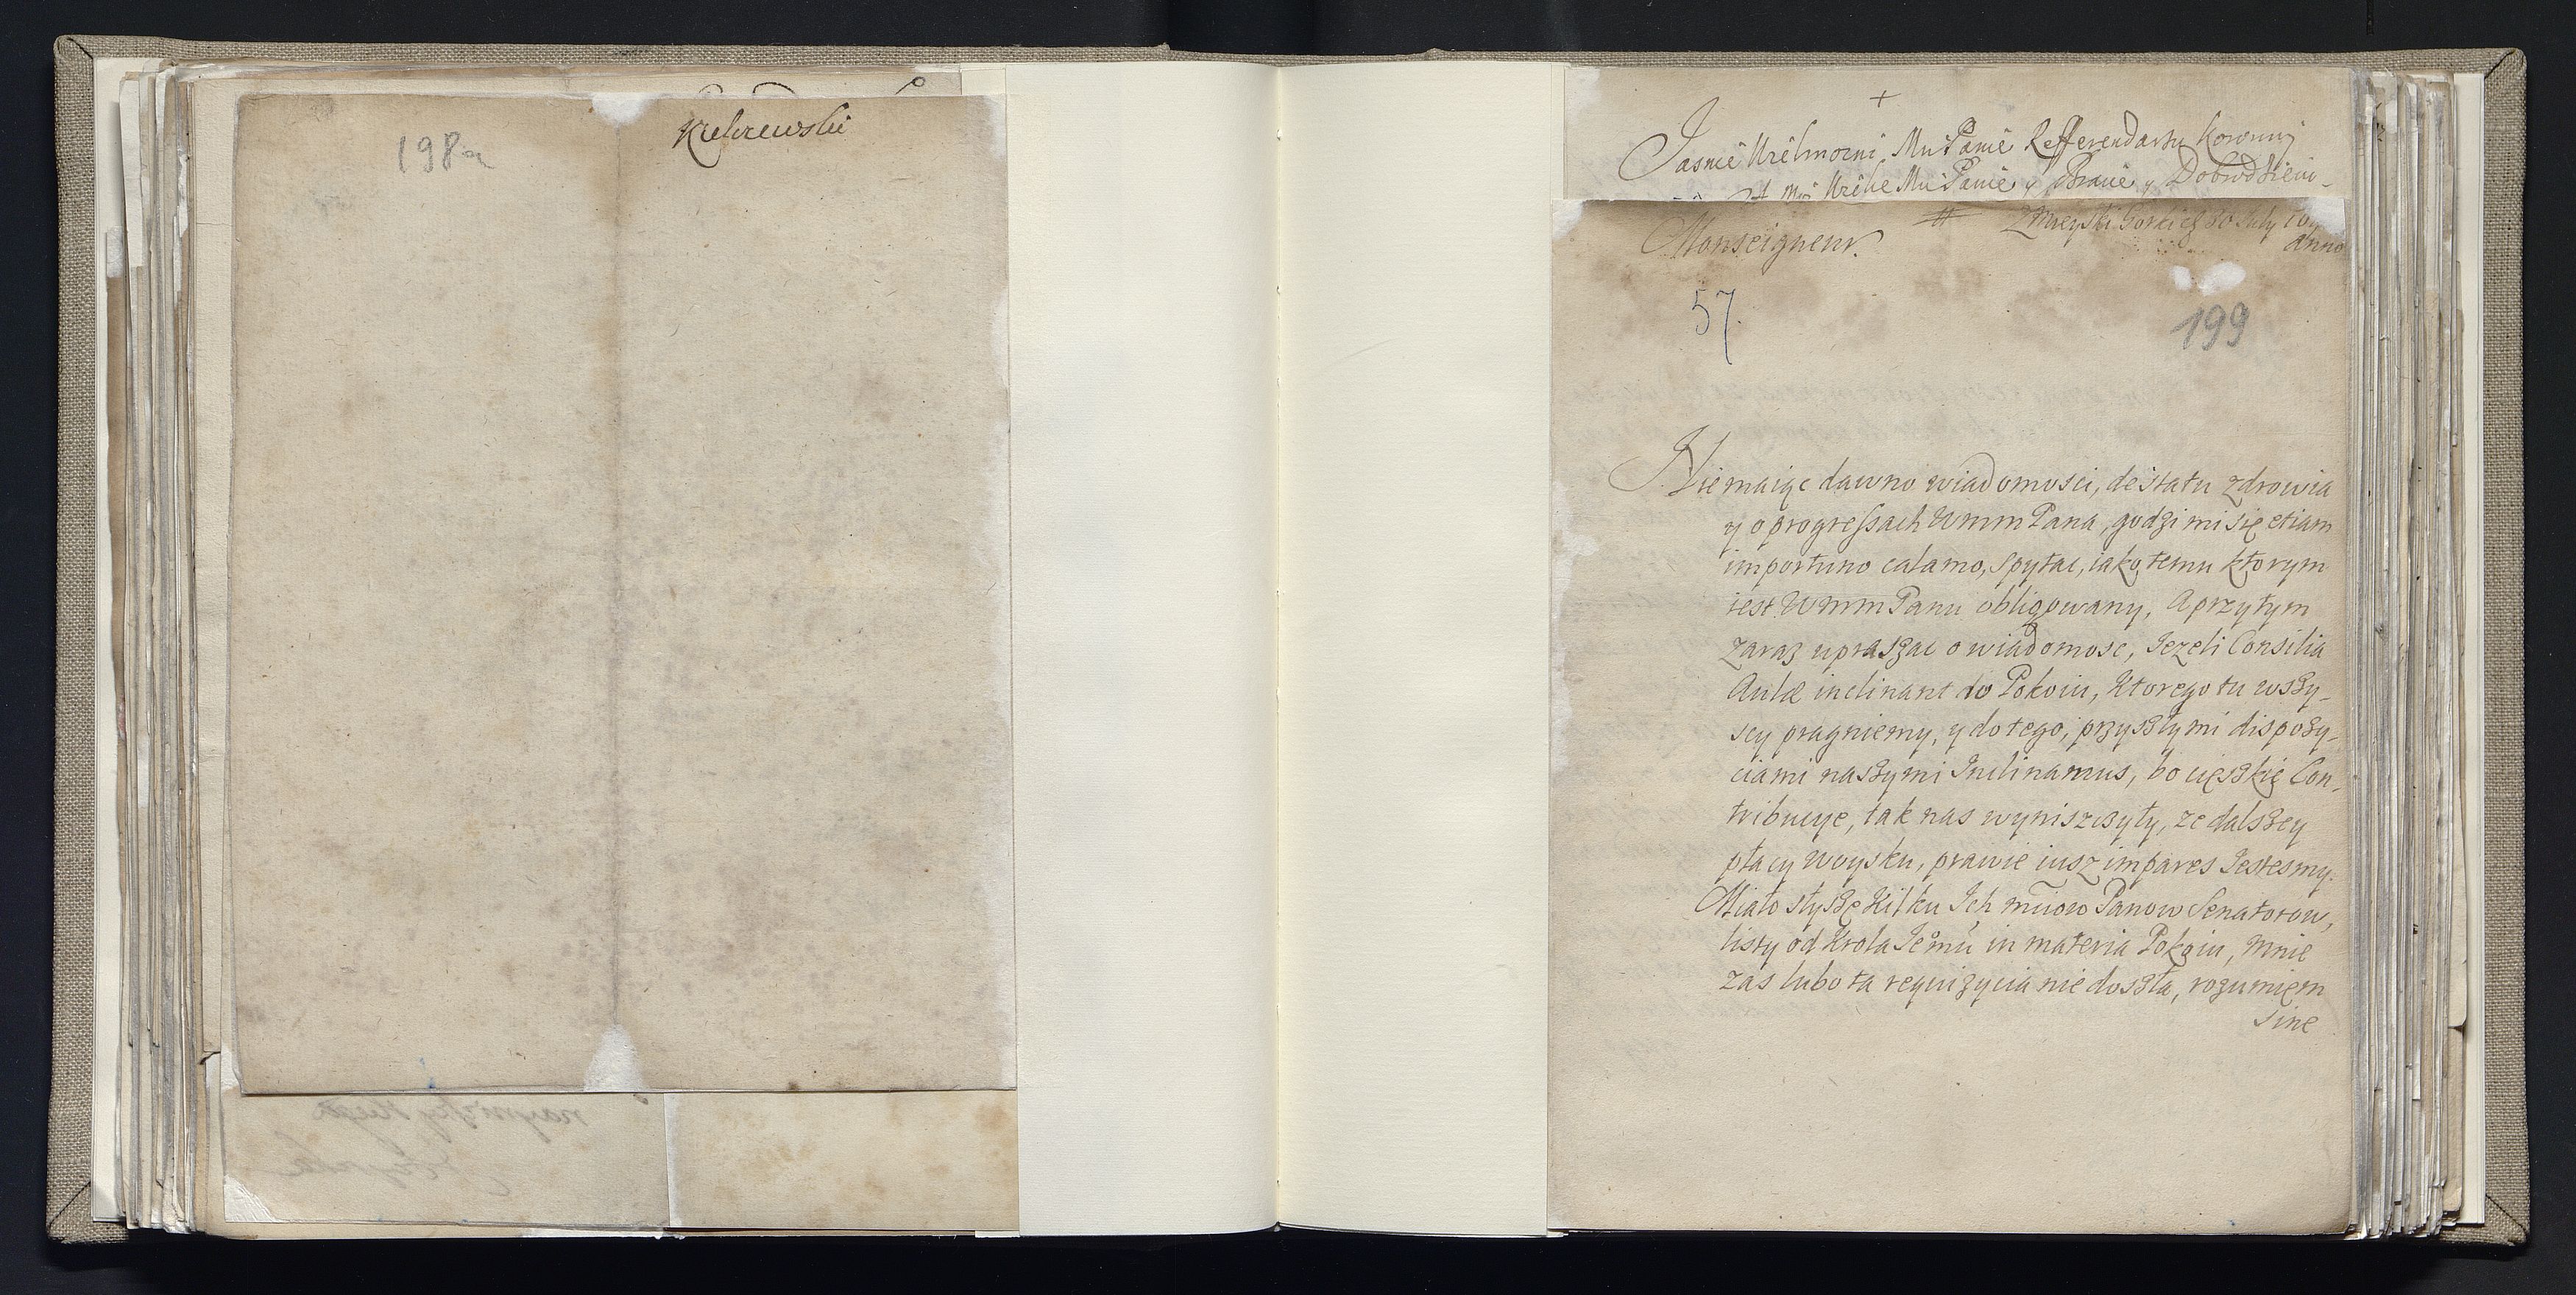 198a
Krelczewski
+
Jasnie Wielmozni Mũ Panie Refferendarzu Koronnij
Mũ Panie y Bracie y Dobrodzieiu
Monseigneur.
30 July
Anno
57.
199
Nie maiąc dawno wiadomosci, de statu zdrowia
y o progressach Wmm Pana, godzi mi się etiam
importuno calamo, spytac, iako temu ktorym
iest Wmm Panu obligowany, A przytym
zaraz upraszac o wiadomosc, Jezeli Consilia
Aulæ inclinant do Pokoiu, Ktorego tu wszy-
scy pragniemy, y do tego, przyszłymi dispozy-
ciami naszymi Inclinamus, bo cięszkię Con-
tribucye, tak nas wyniszczyły, ze dalszey
płacy woysku, prawie iusz impares Jestesmy.
Miało słyszę Kilku Ich mũow Panow Senatorow,
listy od Krola Jeo mũ in materia Pokoiu, Mnie
zas lubo ta requizycia nie doszła, rozumięm
sine